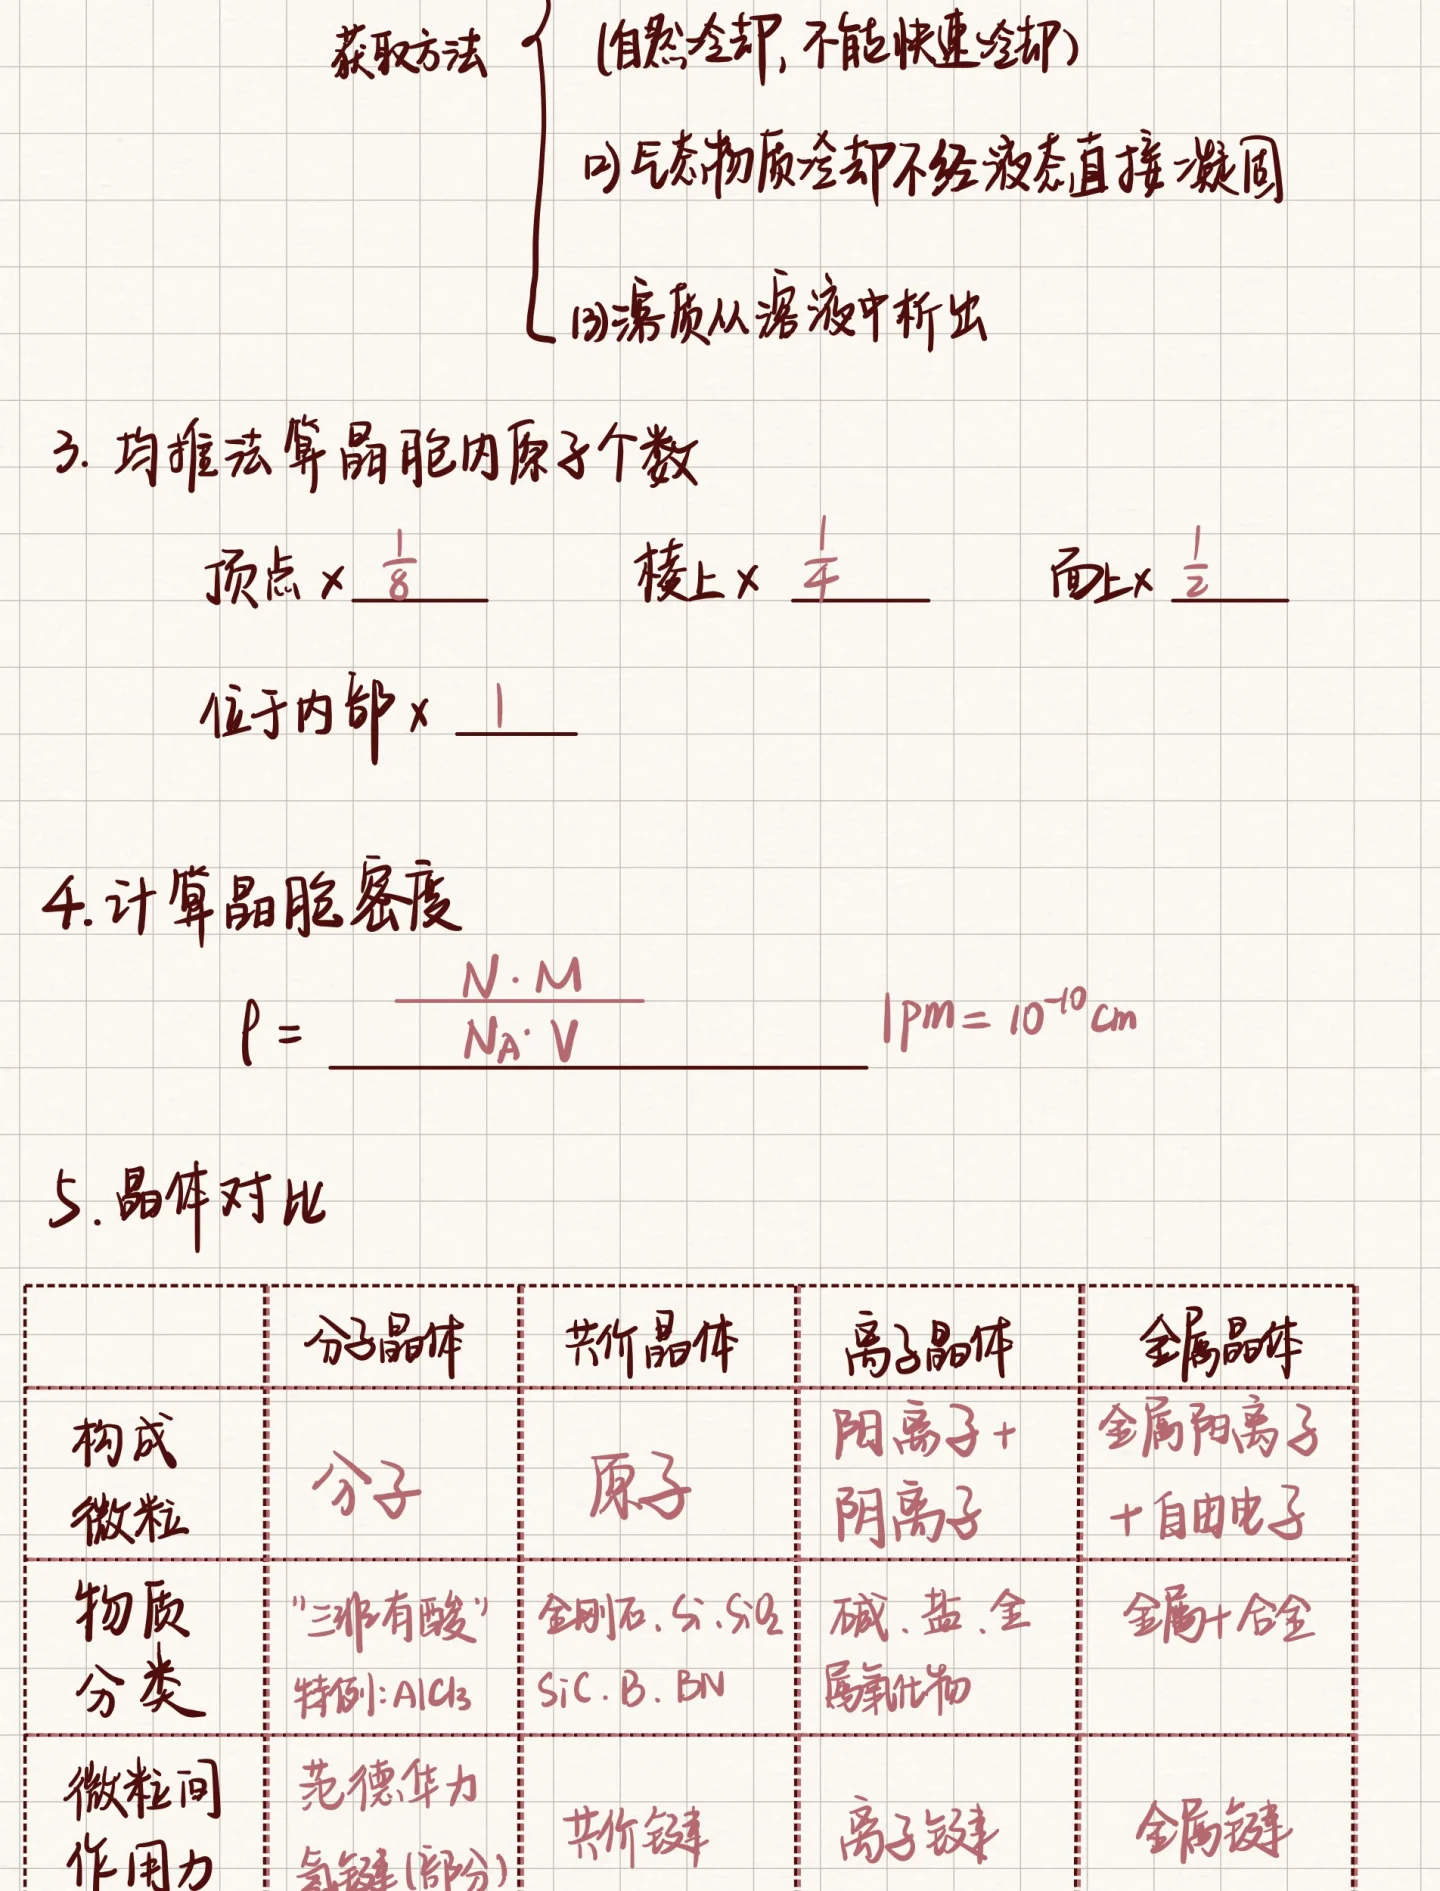 获取方法
(自然冷却,不能快速冷却)
(2)气态物质冷却不经液态直接凝固
(3)溶质从溶液中析出
3. 均摊法算晶胞内原子个数
顶点 × 1/8 棱上 × 1/4 面上 × 1/2
位于内部 × 1
4. 计算晶胞密度
ρ = N·M / N_A·V 1pm = 10^-10 cm
5. 晶体对比
分子晶体 共价晶体 离子晶体 金属晶体
构成
微粒
分子
原子
阳离子+
阴离子
金属阳离子
+自由电子
物质
分类
"三非有酸"
特例:AlCl3
金刚石、Si、SiO2
SiC、B、BN
碱、盐、金
属氧化物
金属+合金
微粒间
作用力
范德华力
氢键(部分)
共价键
离子键
金属键